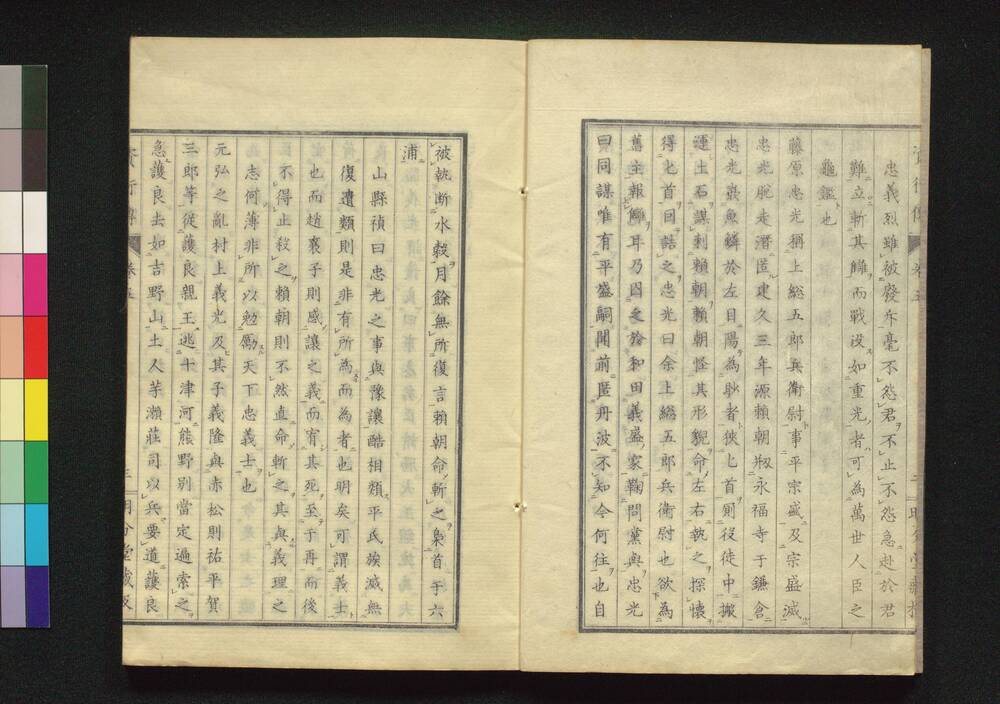 忠義烈雖被廢斥毫不怨君不止不怨急赴於君
難立斬其讎而戰沒如重光者可為萬世人臣之
龜鑑也
藤原忠光稱上総五郎兵衛尉事平宗盛及宗盛滅
忠光脫走潛匿建久三年源賴朝刱永福寺于鎌倉
忠光嵌魚鱗於左目陽為眇者挾匕首厠役徒中搬
運土石謀刺賴朝賴朝怪其形貌命左右執之探懷
得匕首回詰之忠光曰余上総五郎兵衛尉也欲為
舊主報讎耳乃囚之於和田義盛家鞠問黨與忠光
曰同謀唯有平盛嗣聞前匿丹波不知今何往也自
被執斷水穀月餘無所復言賴朝命斬之梟首于六
浦
山縣禎曰忠光之事與豫讓酷相類平氏族滅無
復遺類則是非有所為而為者也明矣可謂義士
也而趙襄子則感讓之義而宥其死至于再而後
不得止殺之賴朝則不然直命斬之其與義理之
志何薄非所以勉勵天下忠義士也
元弘之亂村上義光及其子義隆與赤松則祐平賀
三郎等從護良親王逃十津河熊野別當定遍索之
急護良去如吉野山土人芋瀨莊司以兵要道護良